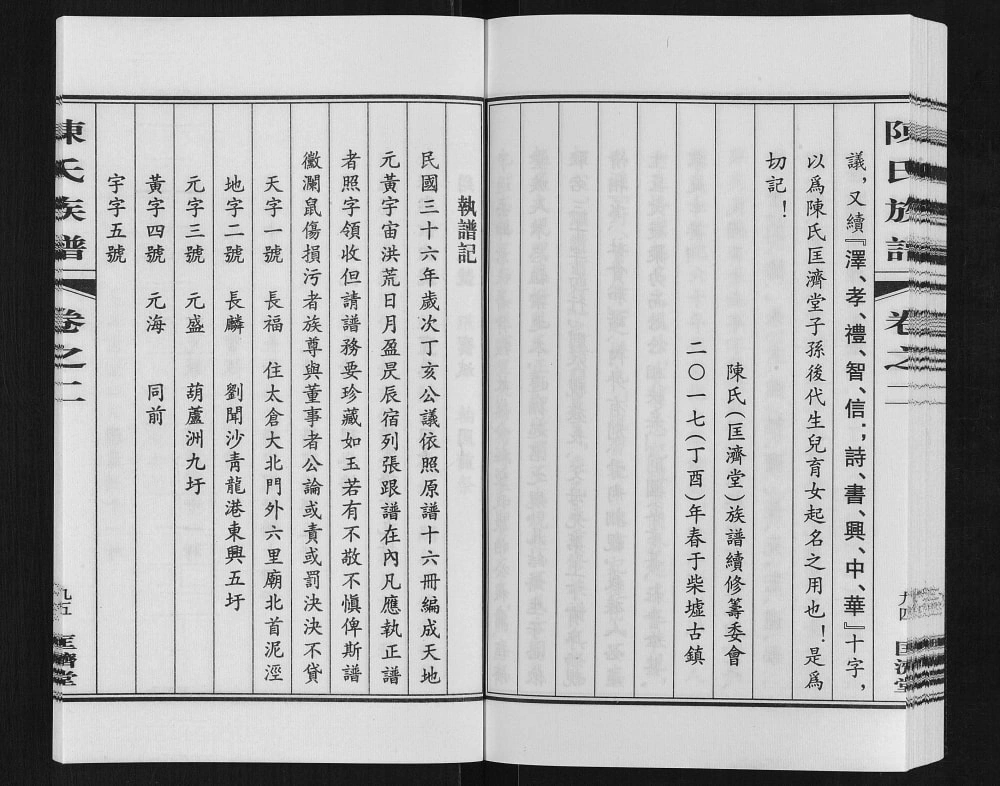 陳氏族譜
卷之二
九四
匡濟堂
議，又續『澤、孝、禮、智、信；詩、書、興、中、華』十字，
以爲陳氏匡濟堂子孫後代生兒育女起名之用也！是爲
切記！
陳氏（匡濟堂）族譜續修籌委會
二〇一七（丁酉）年春于柴墟古鎮
執譜記
民國三十六年歲次丁亥公議依照原譜十六冊編成天地
元黃字宙洪荒日月盈昃辰宿列張跟譜在內凡應執正譜
者照字領收但請譜務要珍藏如玉若有不敬不愼俾斯譜
徽瀾鼠傷損污者族尊與董事者公論或責或罰決決不貸
天字一號 長福 住太倉大北門外六里廟北首泥涇
地字二號 長麟 劉聞沙靑龍港東興五圩
元字三號 元盛 葫蘆洲九圩
黃字四號 元海 同前
宇字五號
陳氏族譜
卷之二
九五
匡濟堂